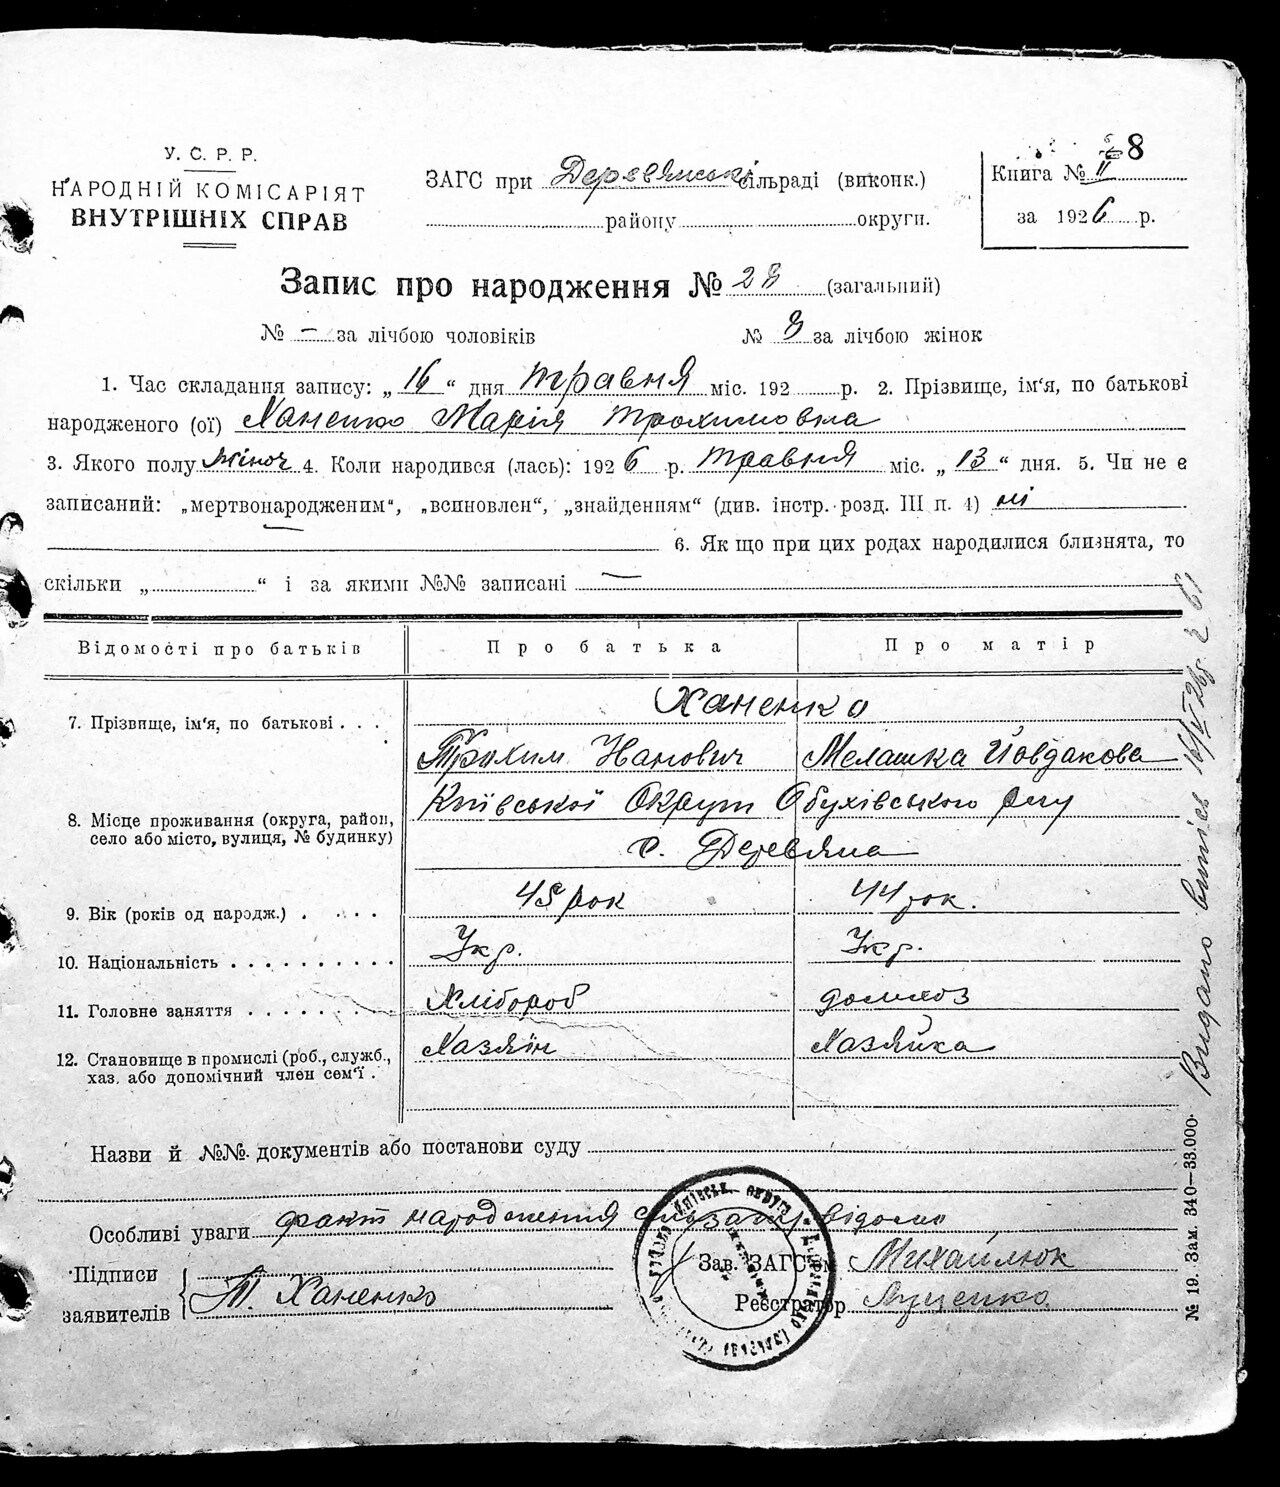 8
У. С. Р. Р.
НАРОДНІЙ КОМІСАРІЯТ
ВНУТРІШНІХ СПРАВ
ЗАГС при Деревянській сільраді (виконк.)
району округи.
Книга № II
за 1926 р.
Запис про народження № 28 (загальний)
№ — за лічбою чоловіків № 8 за лічбою жінок
1. Час складання запису: „16“ дня травня міс. 192 р. 2. Прізвище, ім'я, по батькові
народженого (ої) Ханенко Марія Трохимовна
3. Якого полу жіноч 4. Коли народився (лась): 1926 р. травня міс. „13“ дня. 5. Чи не є
записаний: „мертвонародженим“, „всиновлен“, „знайденням“ (див. інстр. розд. III п. 4) ні
6. Як що при цих родах народилися близнята, то
скільки „ “ і за якими №№ записані —
Відомості про батьків Про батька Про матір
7. Прізвище, ім'я, по батькові . . . Ханенко
Трохим Іванович Мелашка Йовдакова
8. Місце проживання (округа, район, село або місто, вулиця, № будинку) Київської Округи Обухівського рну
с. Деревяна
9. Вік (років од народж.) . . . . . 45 рок 44 рок.
10. Національність . . . . . . . . . . Укр. Укр.
11. Головне заняття . . . . . . . Хлібороб домхоз
12. Становище в промислі (роб., служб., хаз. або допомічний член сем'ї . Хазяїн Хазяйка
Назви й №№ документів або постанови суду
Особливі уваги факт народження відомо
Підписи
заявителів Т. Ханенко
Зав. ЗАГС'ом Михайлюк
Реєстратор Луценко
Видано витіс 16/V 26р. № 61
№ 19. Зам. 340—33.000.